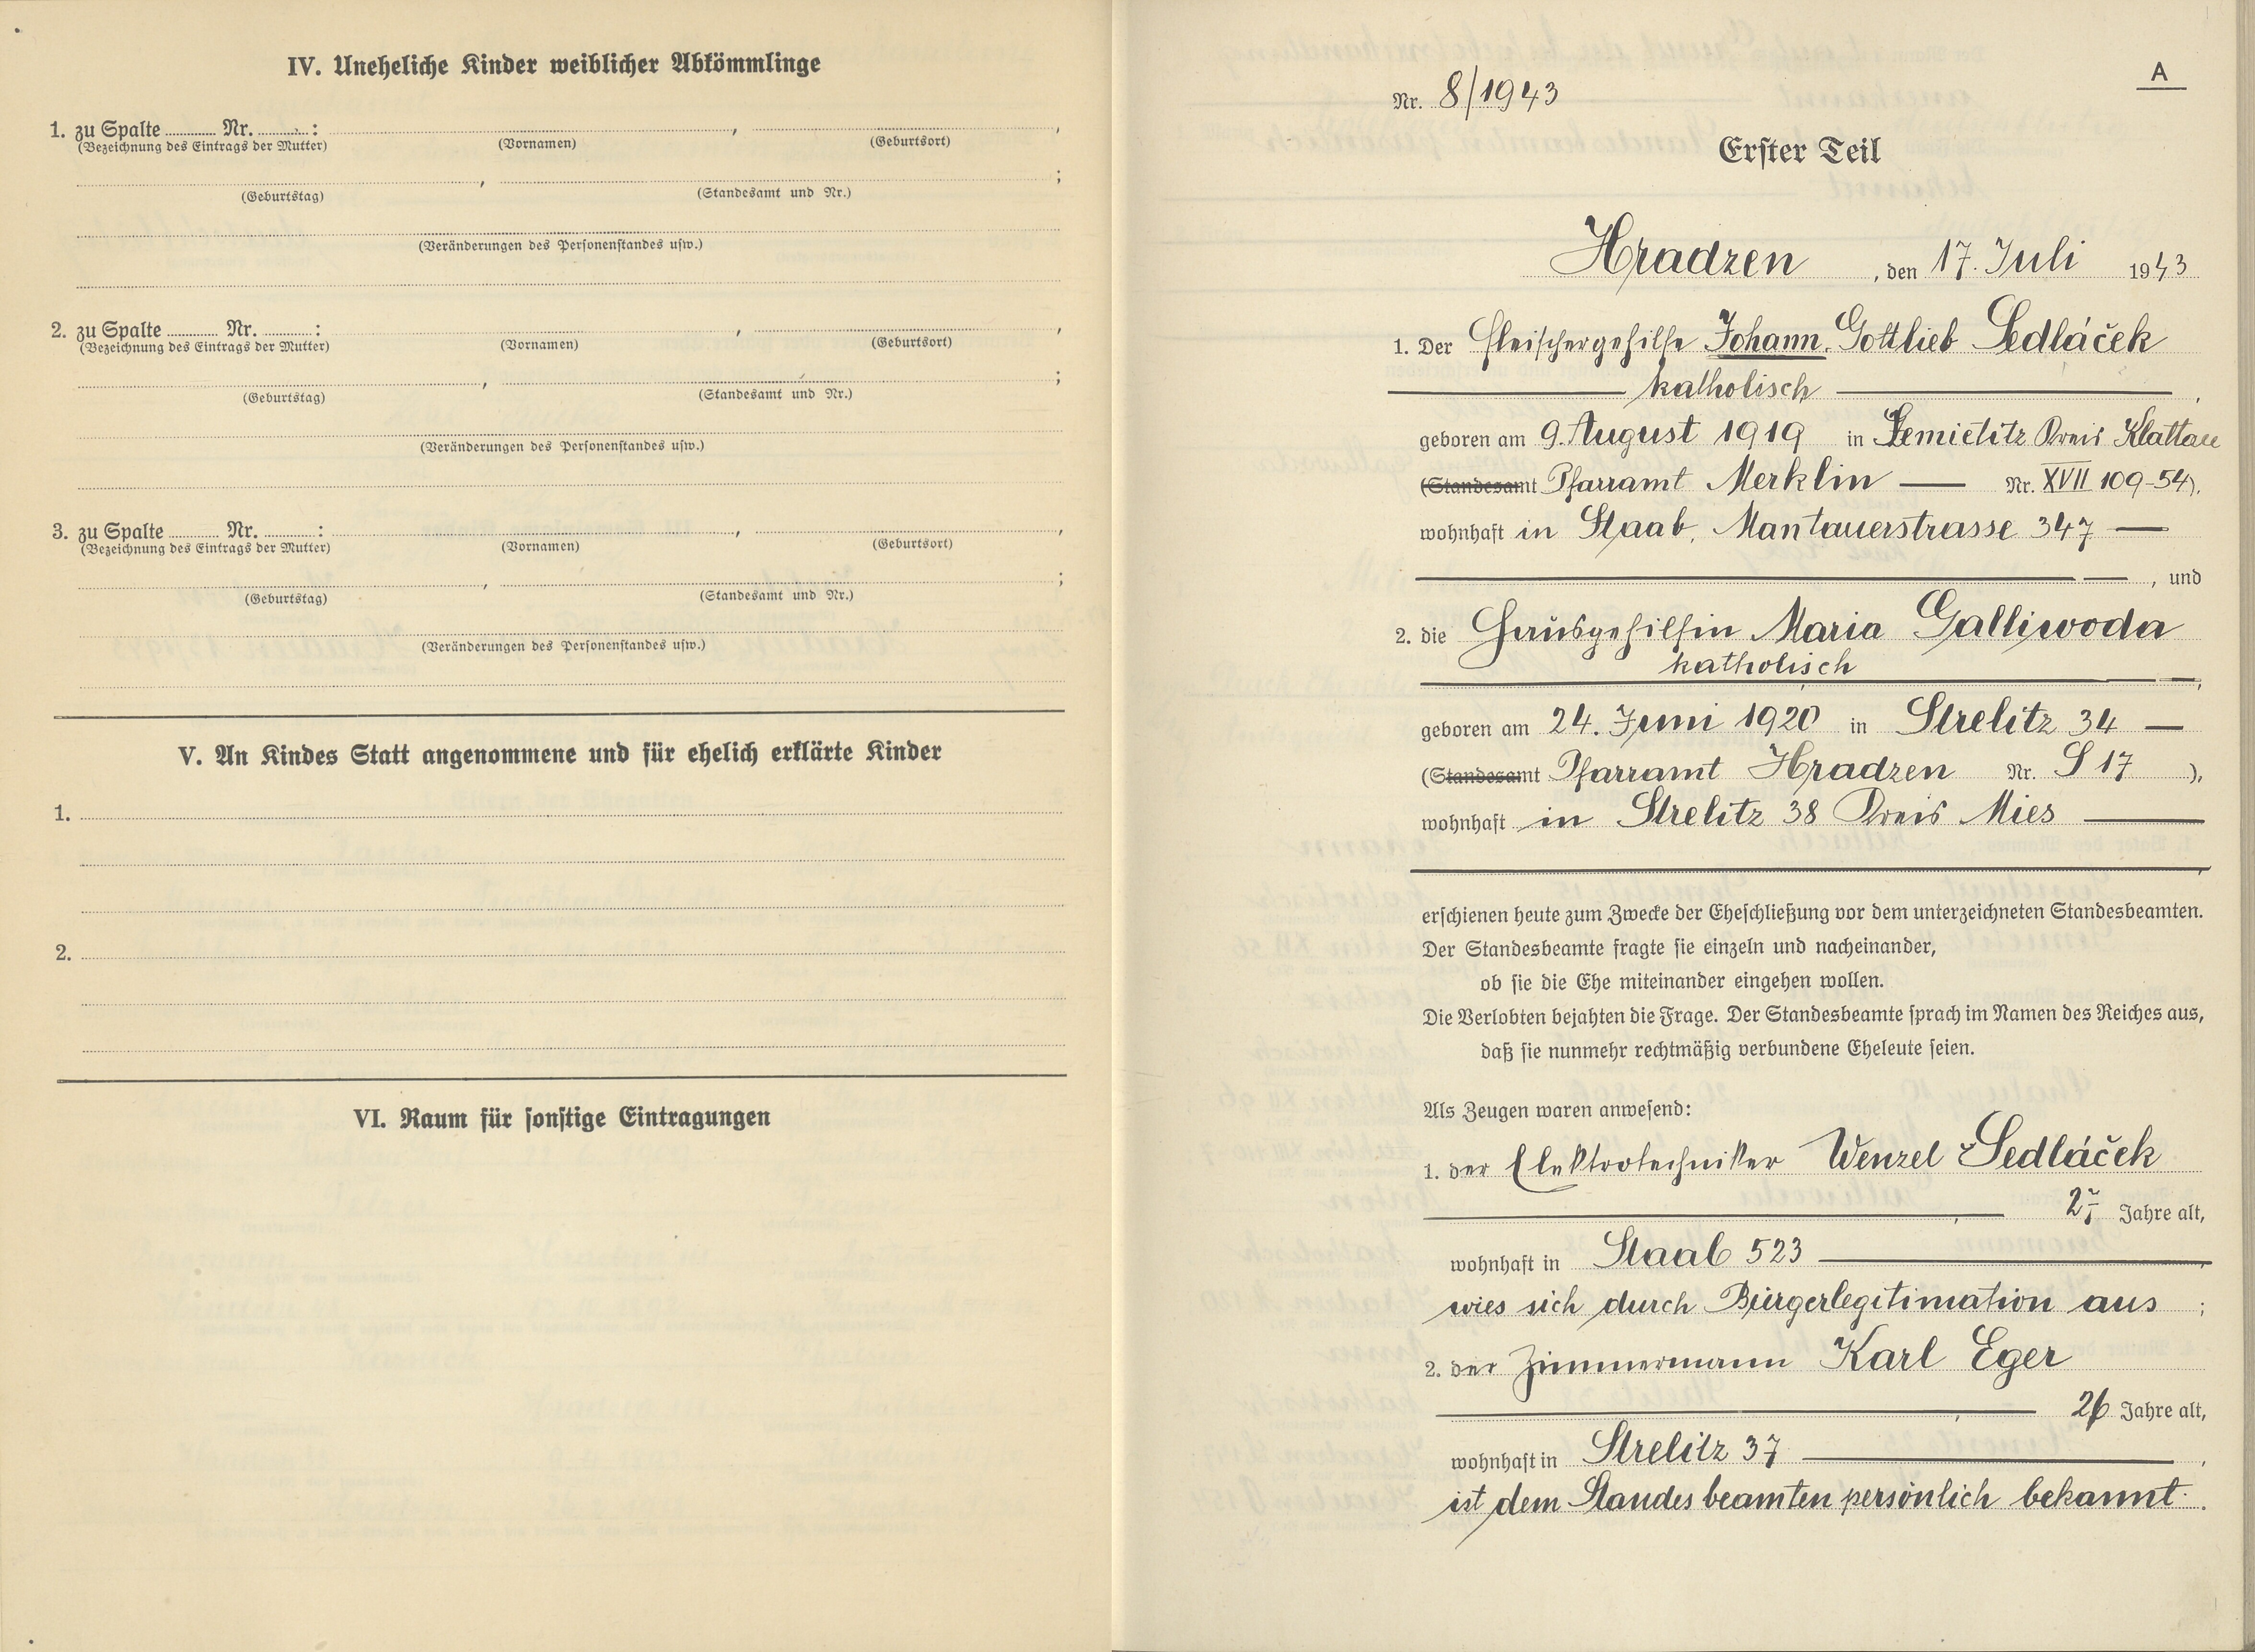 IV. Uneheliche Kinder weiblicher Abkömmlinge
1. zu Spalte ......... Nr. ......... : , ,
(Bezeichnung des Eintrags der Mutter) (Vornamen) (Geburtsort)
, ;
(Geburtstag) (Standesamt und Nr.)
(Veränderungen des Personenstandes usw.)
2. zu Spalte ......... Nr. ......... : , ,
(Bezeichnung des Eintrags der Mutter) (Vornamen) (Geburtsort)
, ;
(Geburtstag) (Standesamt und Nr.)
(Veränderungen des Personenstandes usw.)
3. zu Spalte ......... Nr. ......... : , ,
(Bezeichnung des Eintrags der Mutter) (Vornamen) (Geburtsort)
, ;
(Geburtstag) (Standesamt und Nr.)
(Veränderungen des Personenstandes usw.)
V. An Kindes Statt angenommene und für ehelich erklärte Kinder
1.
2.
VI. Raum für sonstige Eintragungen
A
Nr. 8/1943
Erster Teil
Hradzen, den 17. Juli 1943
1. Der Fleischergehilfe Johann Gottlieb Sedláček
katholisch,
geboren am 9. August 1919 in Semietitz Kreis Klattau
(Standesamt Pfarramt Merklin — Nr. XVII 109-54).
wohnhaft in Staab, Mantauerstrasse 347 —
, und
2. die Hausgehilfin Maria Galliwoda
katholisch,
geboren am 24. Juni 1920 in Strelitz 34 —
(Standesamt Pfarramt Hradzen Nr. S 17 ),
wohnhaft in Strelitz 38 Kreis Mies —
erschienen heute zum Zwecke der Eheschließung vor dem unterzeichneten Standesbeamten.
Der Standesbeamte fragte sie einzeln und nacheinander,
ob sie die Ehe miteinander eingehen wollen.
Die Verlobten bejahten die Frage. Der Standesbeamte sprach im Namen des Reiches aus,
daß sie nunmehr rechtmäßig verbundene Eheleute seien.
Als Zeugen waren anwesend:
1. der Elektrotechniker Wenzel Sedláček
27 Jahre alt,
wohnhaft in Staab 523 —
wies sich durch Bürgerlegitimation aus ;
2. der Zimmermann Karl Eger
26 Jahre alt,
wohnhaft in Strelitz 37 — ,
ist dem Standesbeamten persönlich bekannt.